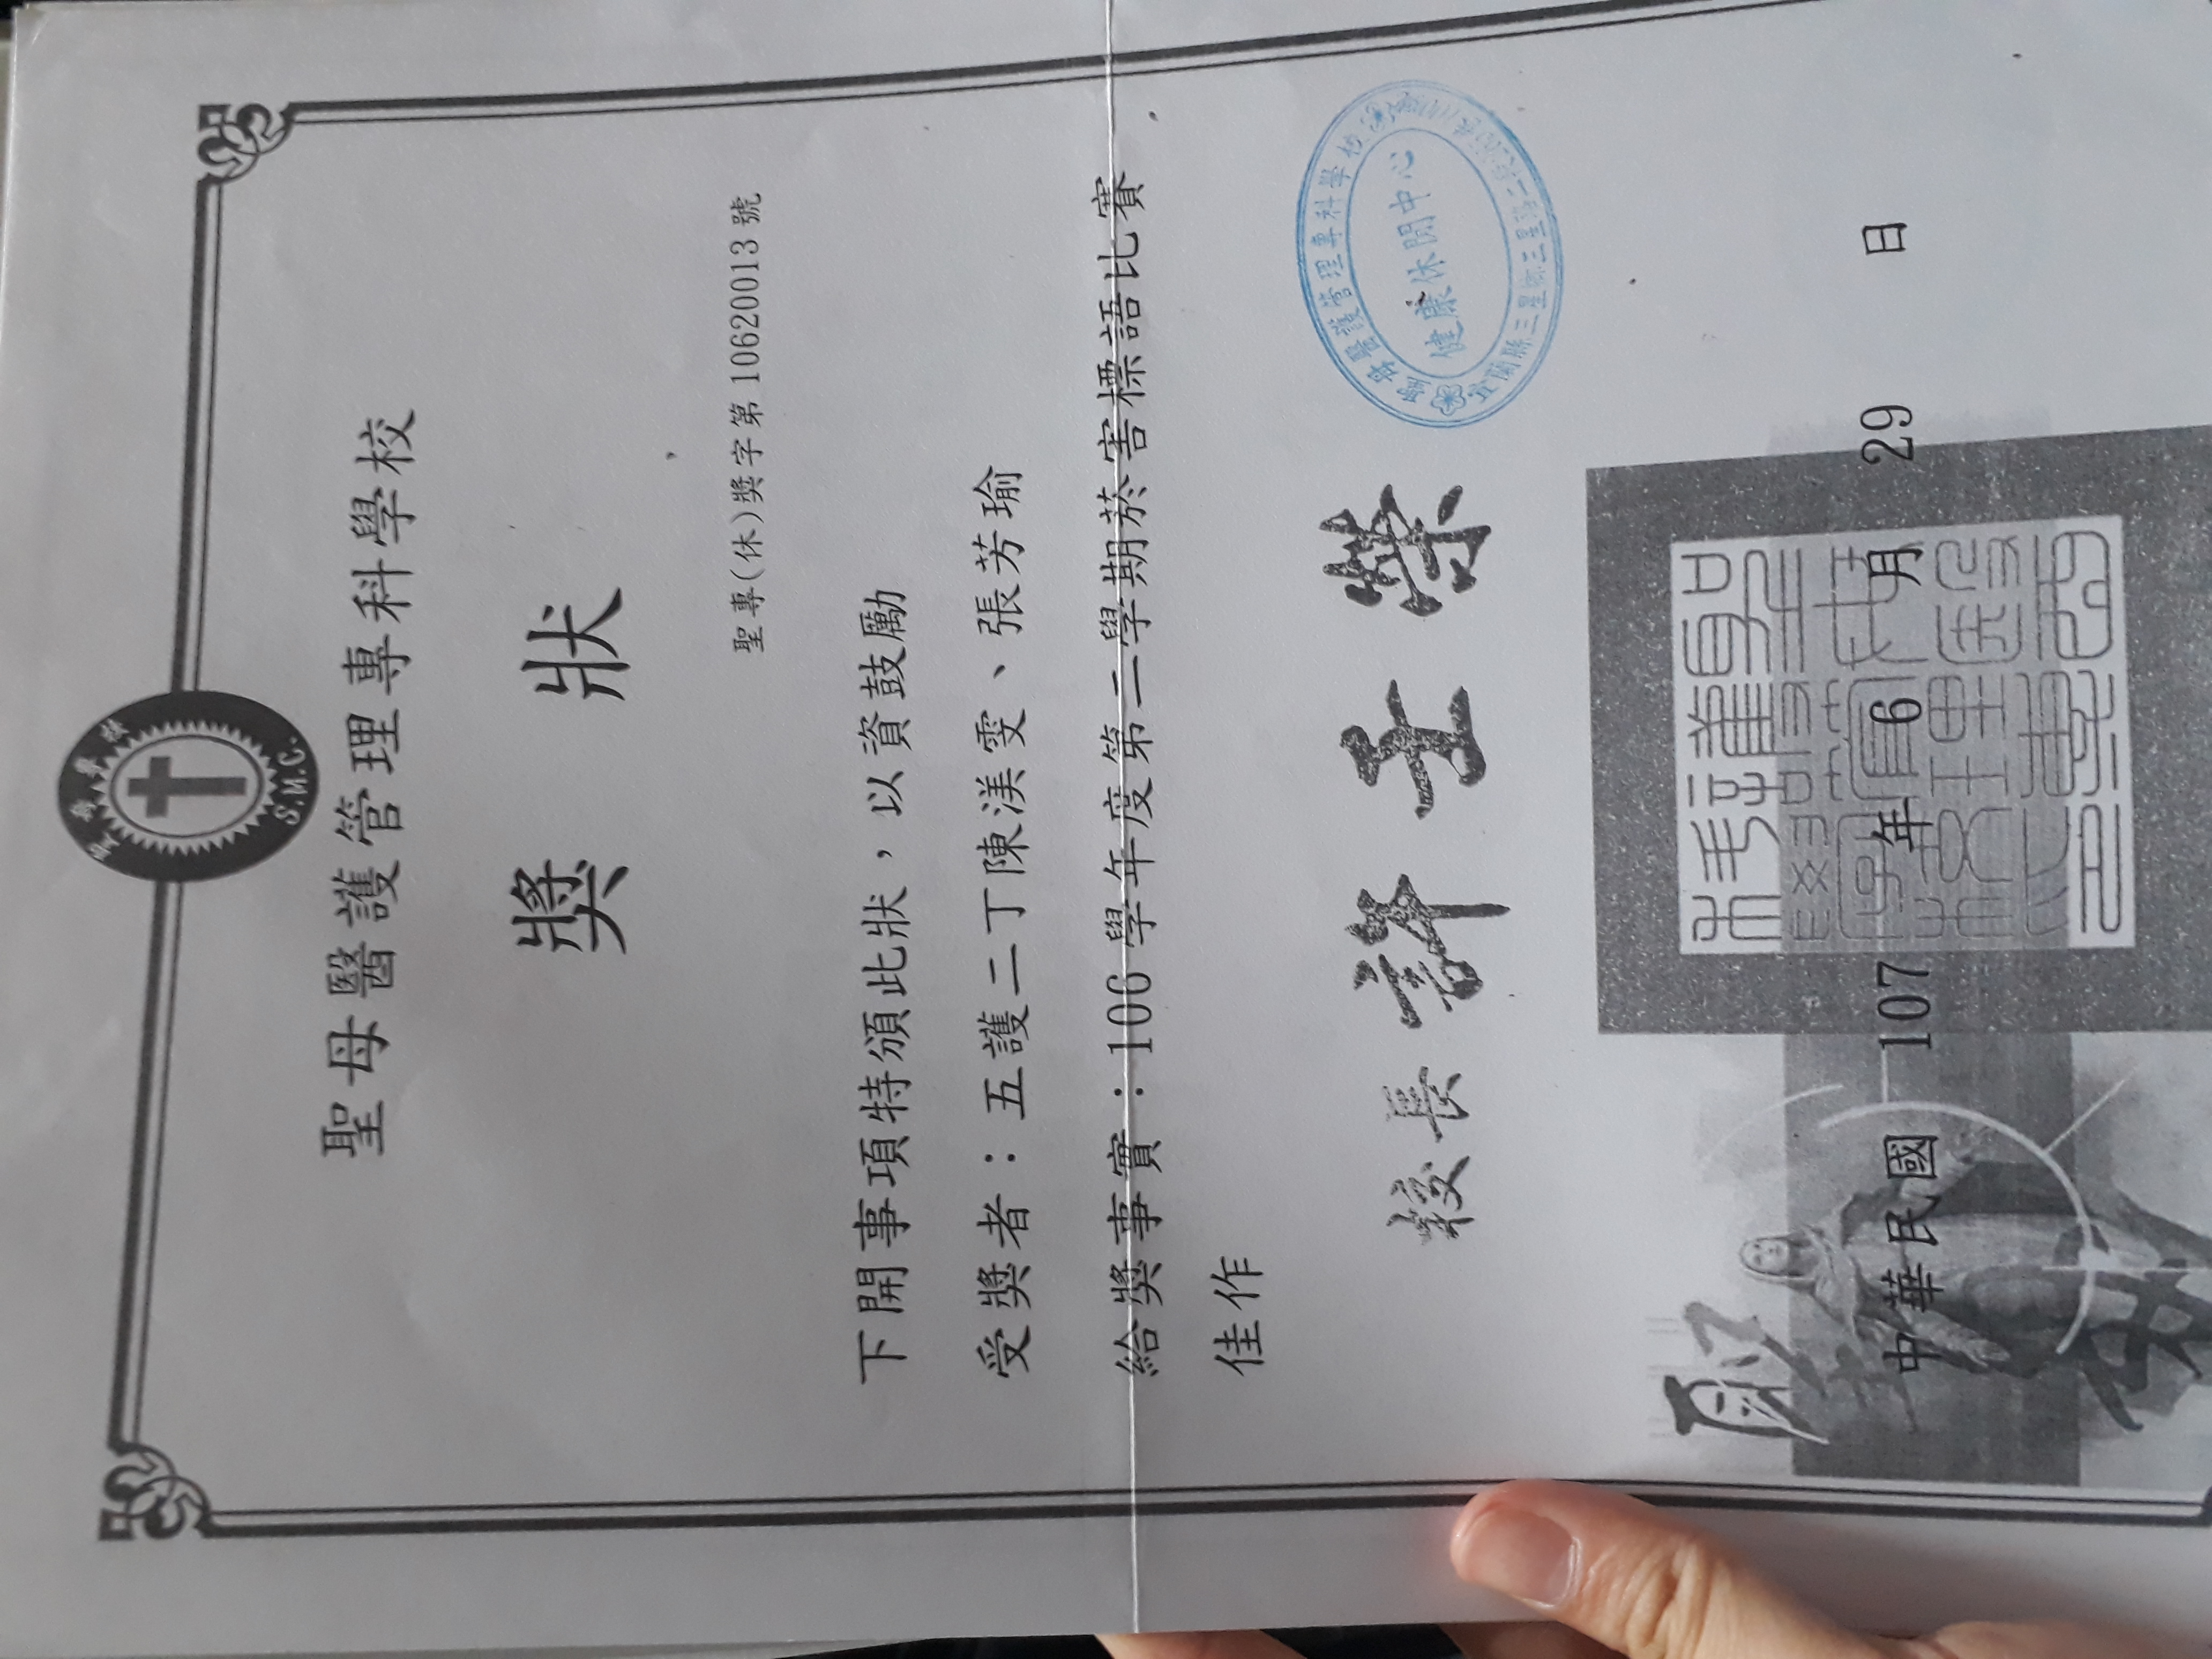 聖母專校
S.M.C.
聖母醫護管理專科學校
獎狀
聖專(休)獎字第10620013號
下開事項特頒此狀，以資鼓勵
受獎者：五護二丁陳渼雯、張芳瑜
給獎事實：106學年度第二學期菸害標語比賽
佳作
聖母醫護管理專科學校
健康休閒中心
宜蘭縣三星鄉三星路二段
校長
中華民國 107 年 6 月 29 日